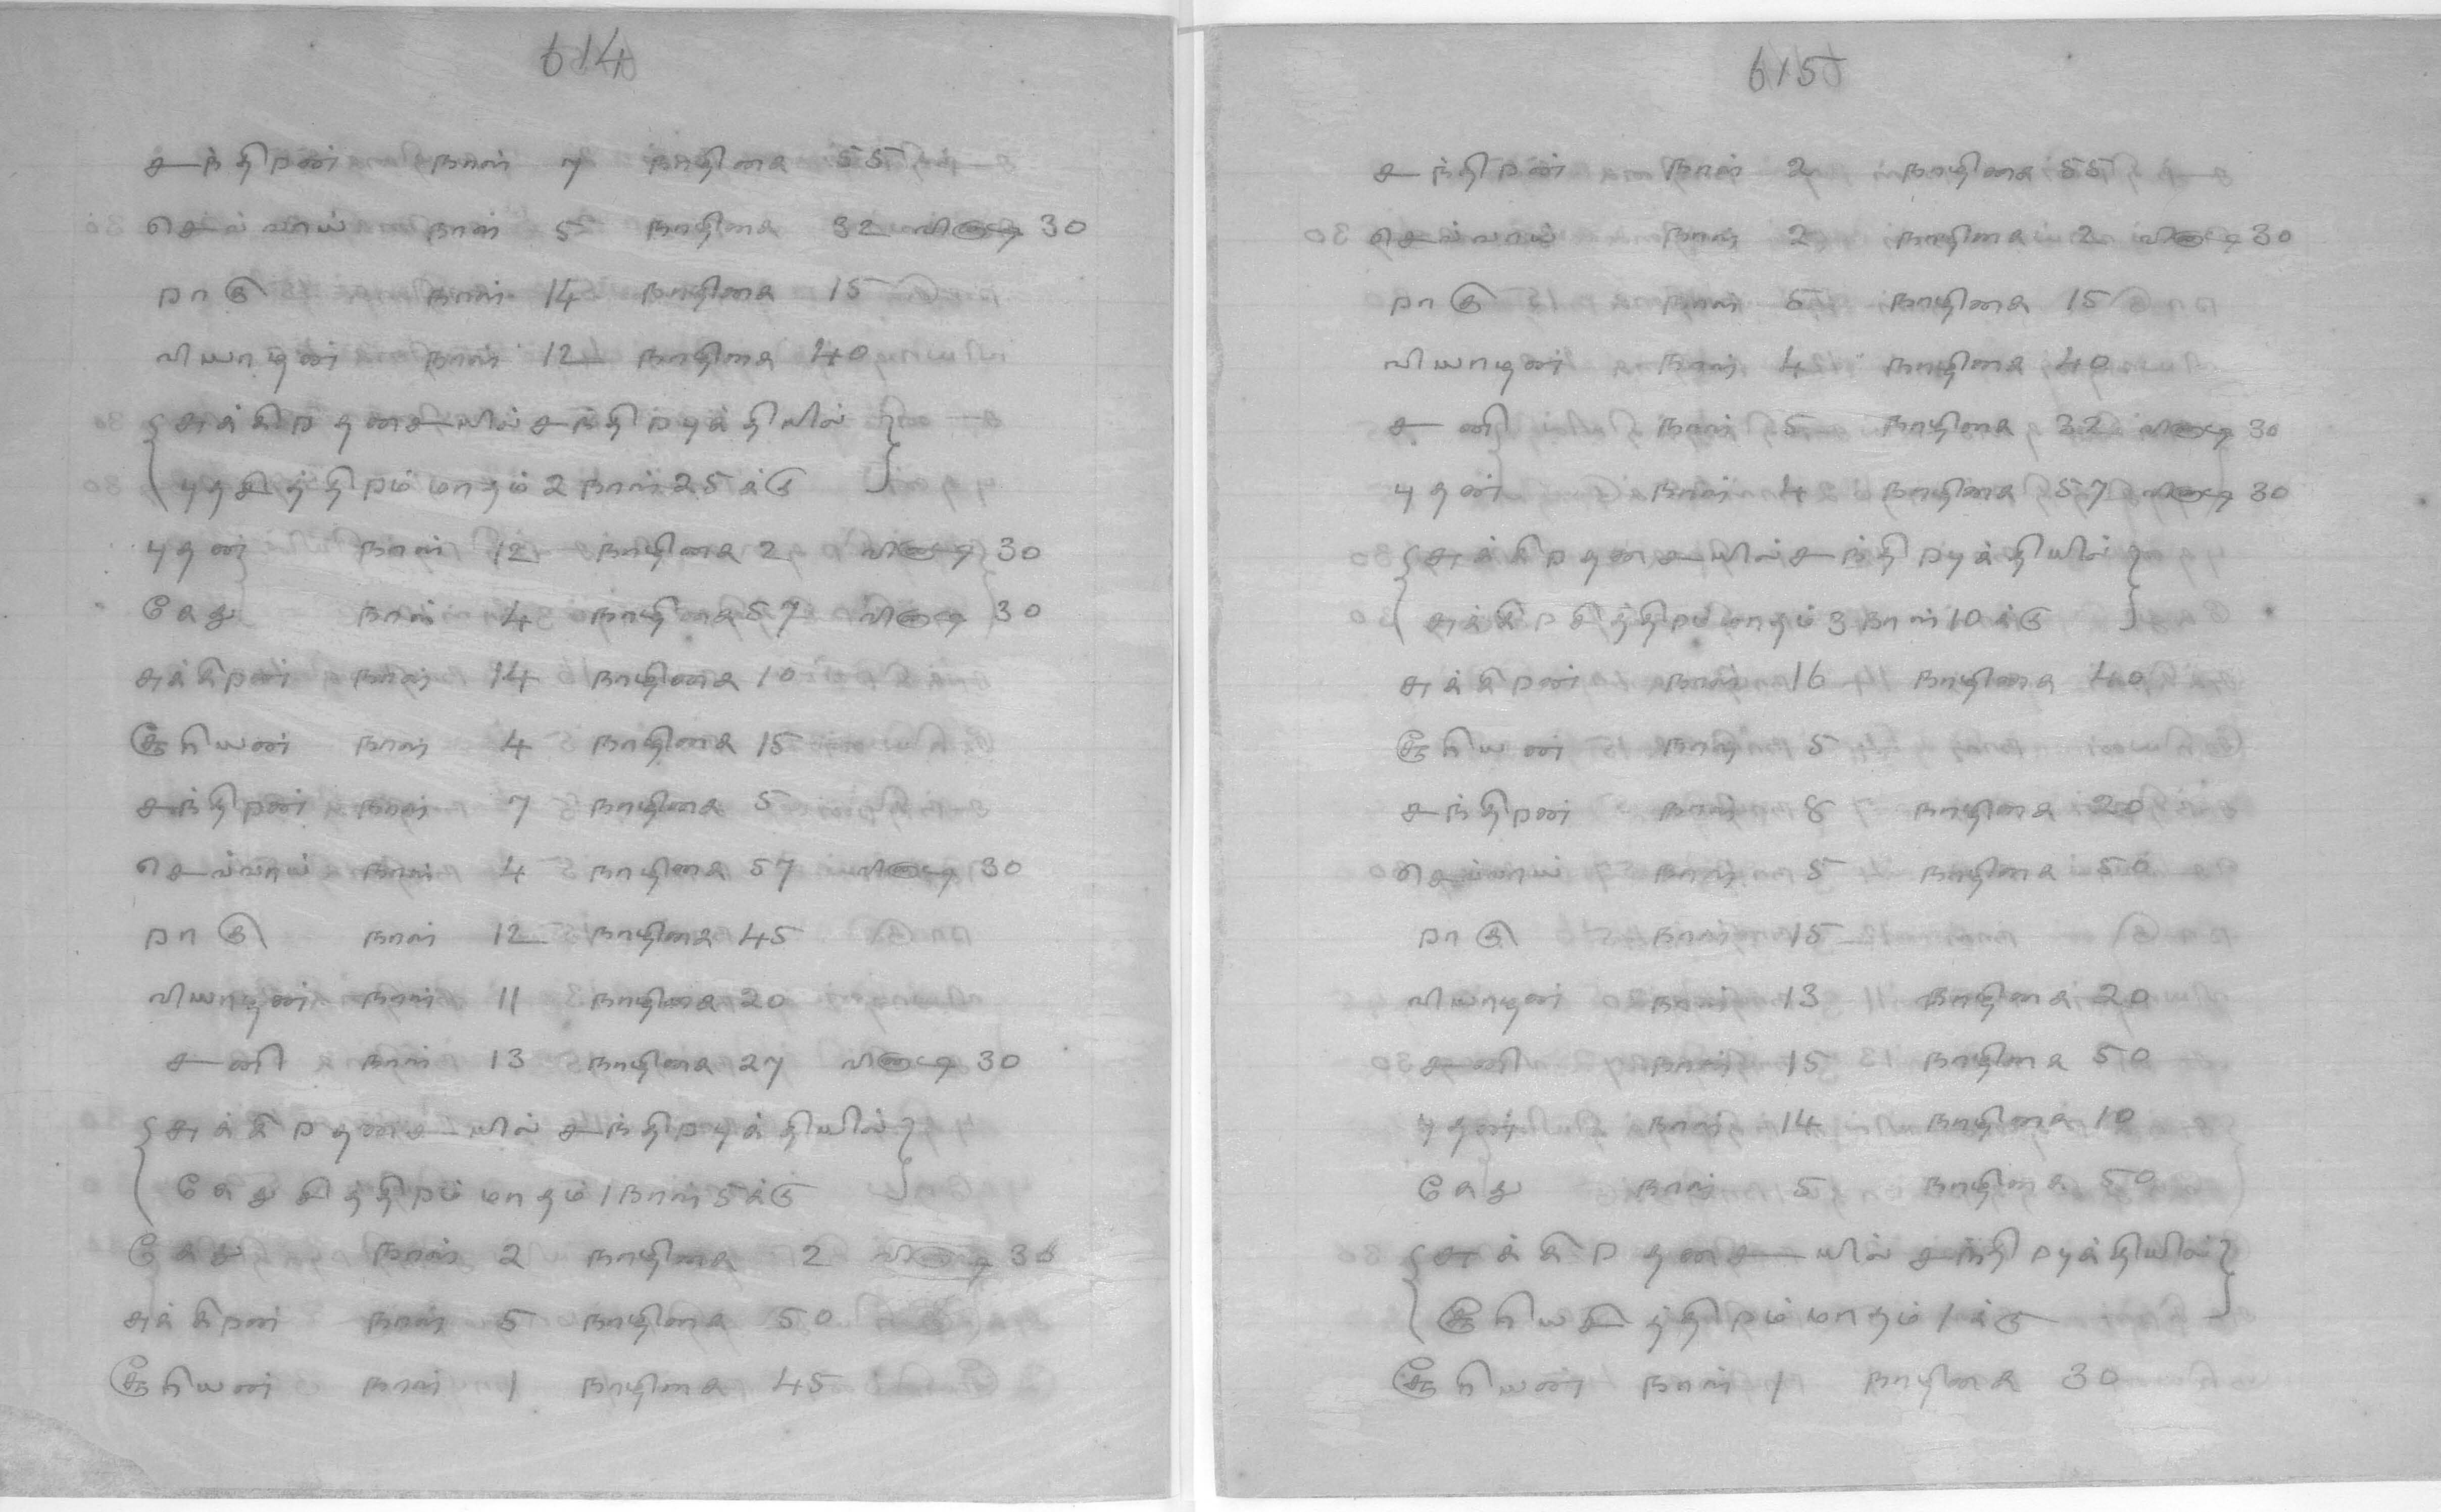 614
சந்திரன் நாள் 7 நாழிகை 55
செவ்வாய் நாள் 5 நாழிகை 32 வினாடி 30
ராகு நாள் 14 நாழிகை 15
வியாழன் நாள் 12 நாழிகை 40
{சுக்கிர தசையில் சந்திரபுக்தியில்}
{புதசித்திரம் மாதம் 2 நாள் 25 க்கு}
புதன் நாள் 12 நாழிகை 2 வினாடி 30
கேது நாள் 4 நாழிகை 57 வினாடி 30
சுக்கிரன் நாள் 14 நாழிகை 10
சூரியன் நாள் 4 நாழிகை 15
சந்திரன் நாள் 7 நாழிகை 5
செவ்வாய் நாள் 4 நாழிகை 57 வினாடி 30
ராகு நாள் 12 நாழிகை 45
வியாழன் நாள் 11 நாழிகை 20
சனி நாள் 13 நாழிகை 27 வினாடி 30
{சுக்கிர தசையில் சந்திரபுக்தியில்}
{கேது சித்திரம் மாதம் 1 நாள் 5 க்கு}
கேது நாள் 2 நாழிகை 2 வினாடி 30
சுக்கிரன் நாள் 5 நாழிகை 50
சூரியன் நாள் 1 நாழிகை 45
615
சந்திரன் நாள் 2 நாழிகை 55
செவ்வாய் நாள் 2 நாழிகை 2 வினாடி 30
ராகு நாள் 5 நாழிகை 15
வியாழன் நாள் 4 நாழிகை 40
சனி நாள் 5 நாழிகை 32 வினாடி 30
புதன் நாள் 4 நாழிகை 57 வினாடி 30
{சுக்கிர தசையில் சந்திரபுக்தியில்}
{சுக்கிர சித்திரம் மாதம் 3 நாள் 10 க்கு}
சுக்கிரன் நாள் 16 நாழிகை 40
சூரியன் நாள் 5
சந்திரன் நாள் 8 நாழிகை 20
செவ்வாய் நாள் 5 நாழிகை 50
ராகு நாள் 15
வியாழன் நாள் 13 நாழிகை 20
சனி நாள் 15 நாழிகை 50
புதன் நாள் 14 நாழிகை 10
கேது நாள் 5 நாழிகை 50
{சுக்கிர தசையில் சந்திரபுக்தியில்}
{சூரியசித்திரம் மாதம் 1 க்கு}
சூரியன் நாள் 1 நாழிகை 30